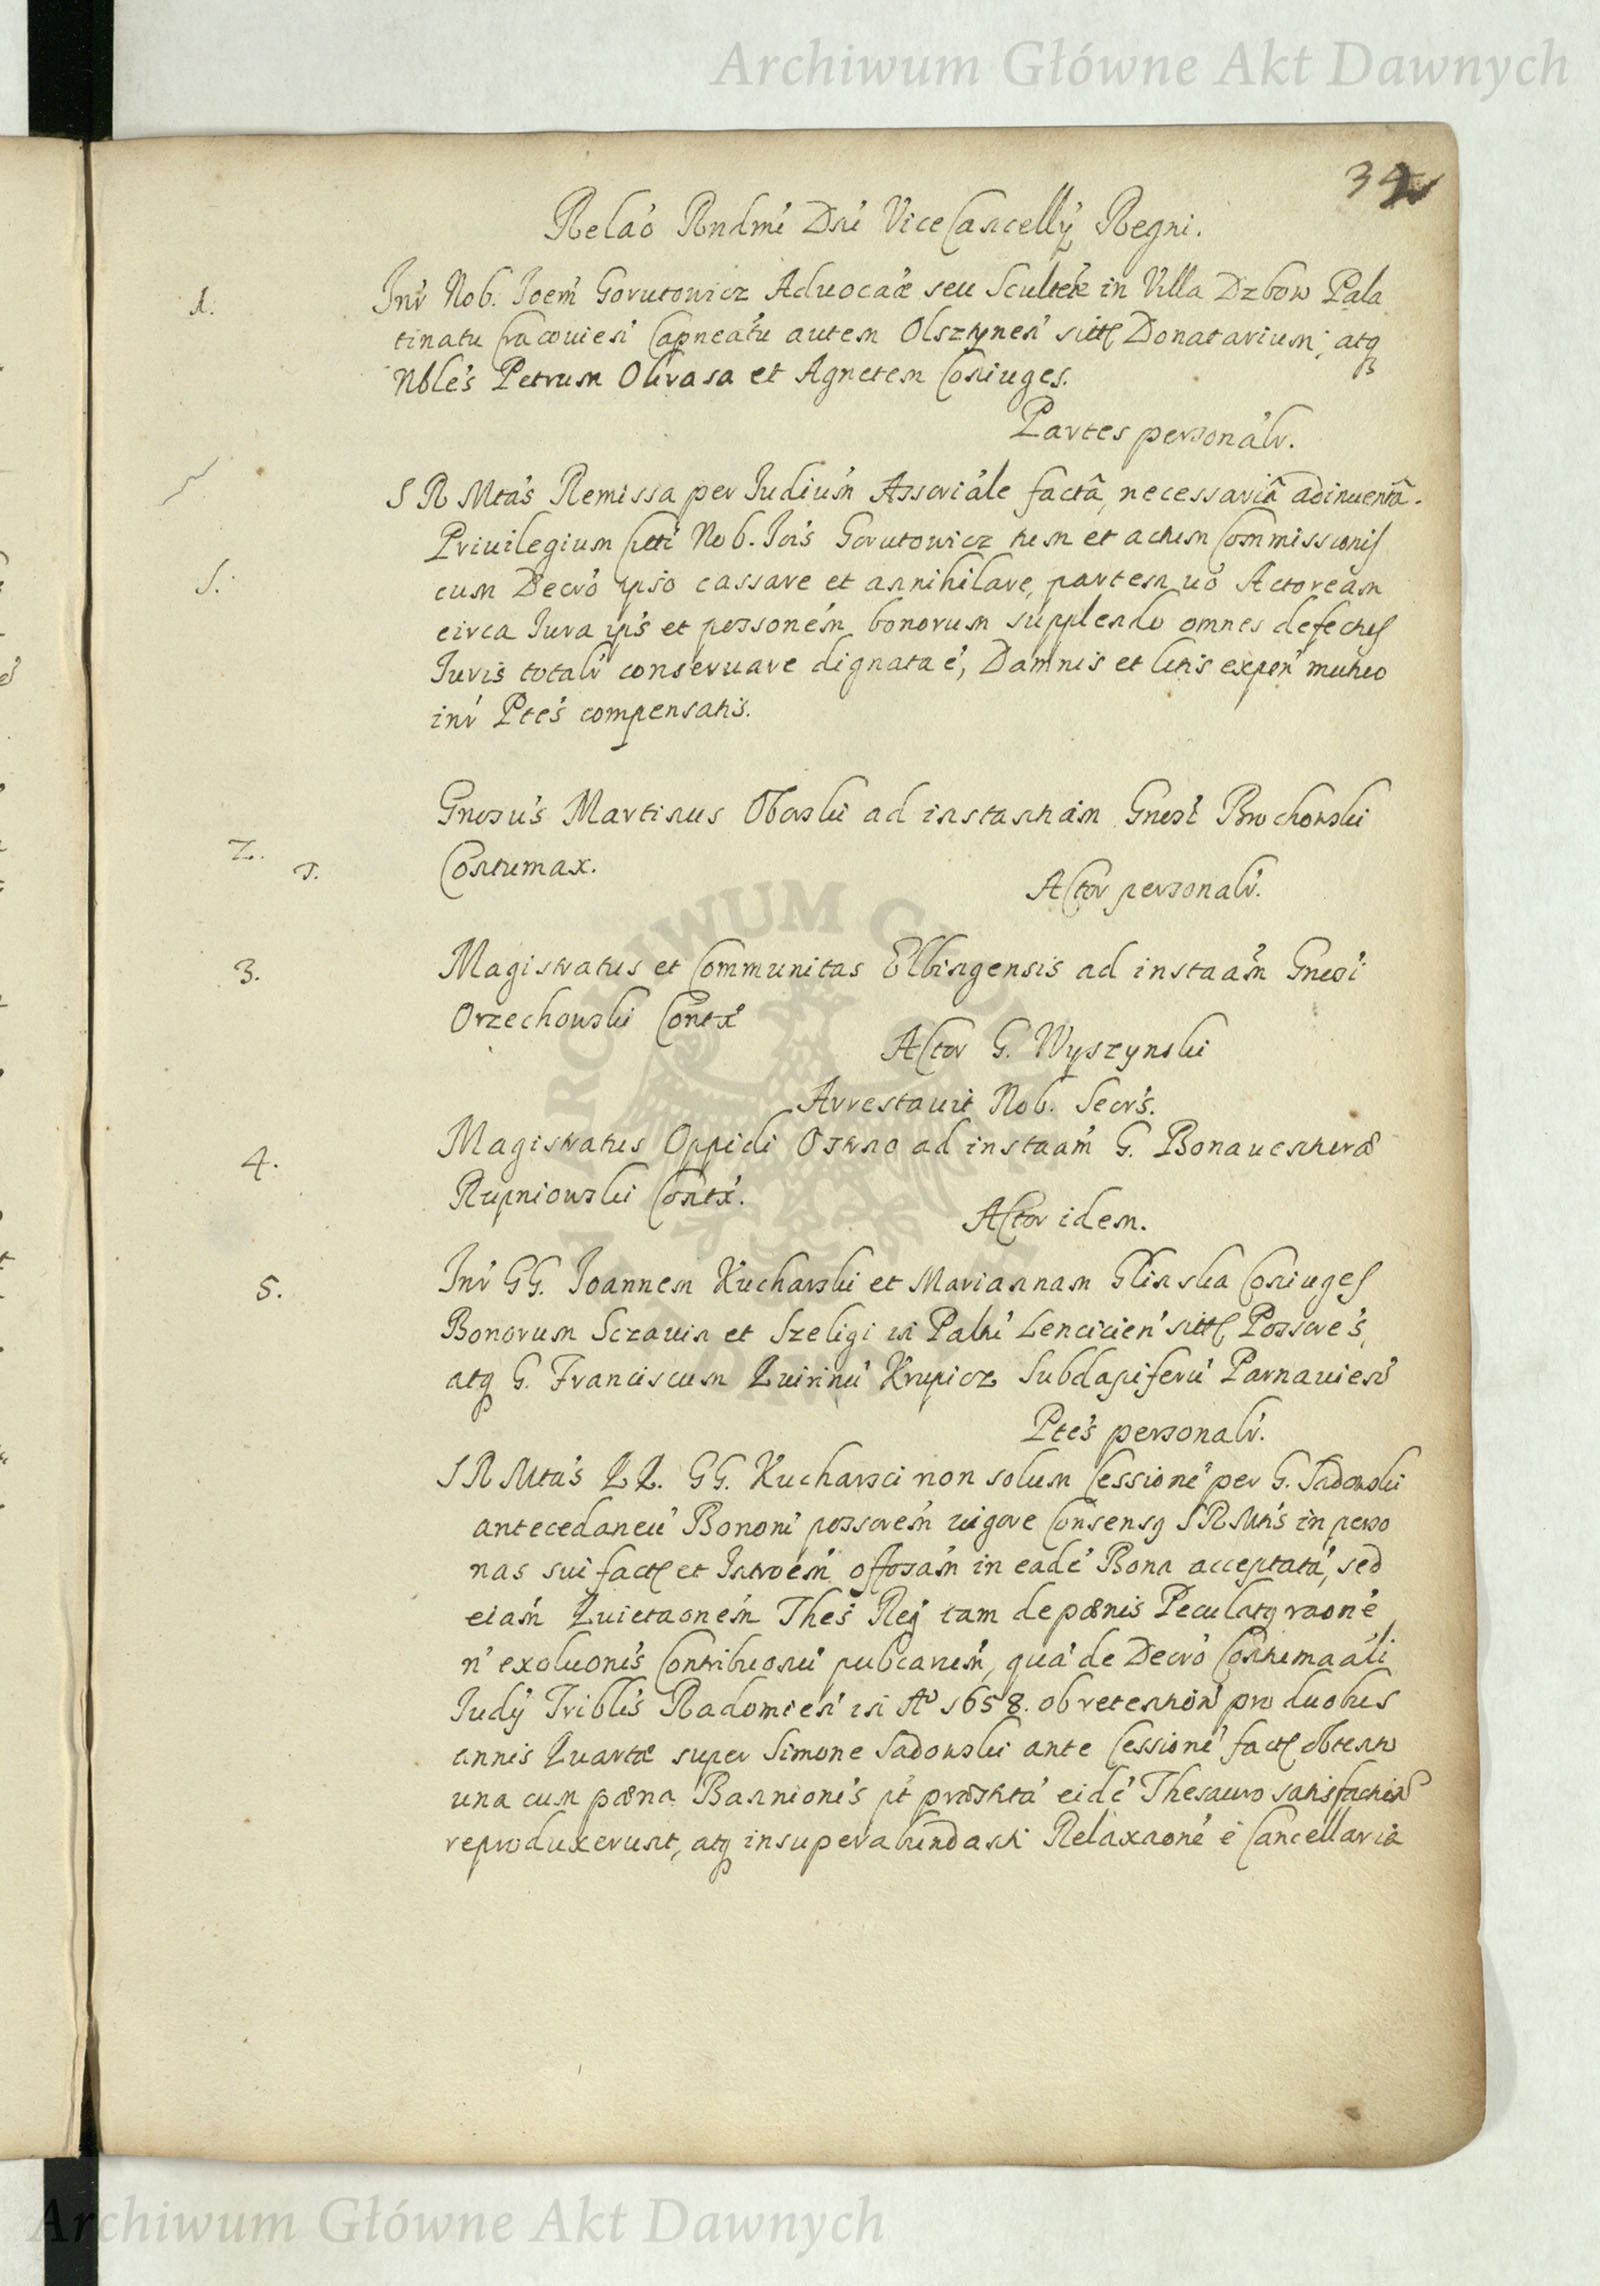 Archiwum Główne Akt Dawnych
34
Relaó Rndmi Dni ViceCancellÿ Regni.
1. Inr Nob. Ioem Gorutowicz Aduocaæ seu Scultetæ in Villa Dzbow Pala
tinatu Cracouien Capneatu autem Olsztynen sitt Donatarium, atq
Nbles Petrum Olivasa et Agnetem Coniuges.
Partes personalr.
S R Mtas Remissa per Iudium Assoriale facta, necessaria adinuenta.
Priuilegium Nob. Iois Gorutowicz tum et actum Commissionis
S. cum Decro ipso cassare et annihilare, partem uo Actoream
circa Iura ips et possonem bonorum supplendo omnes defectus
Iuris totalr conseruare dignata e, Damnis et litis expen mutuo
inr Ptes compensatis.
2. Gnosus Martinus Oborski ad instantiam Gnosi Brochowski
T. Contumax.
Actor personalr.
3. Magistratus et Communitas Elbingensis ad instaam Gnosi
Orzechowski Contx
Actor G. Wyszynski
Arrestauit Nob. Secrs.
4. Magistratus Oppidi Ostrro ad instaam G. Bonauenturæ
Rupniowski Contx.
Actor idem.
5. Inr GG. Ioannem Kucharski et Mariannam Glinska Coniuges
Bonorum Sczauin et Szeligi in Paltu Lencicien sitt Possores,
atq G. Franciscum Quirinu Krupicz Subdapiferu Parnauien
Ptes personalr.
S R Mtas QQ. GG. Kucharsci non solum Cessione per G. Sadowski
antecedaneu Bonoru possorem uigore Consensq S R Mtis in perso
nas sui fact et Introem offosam in eade Bona acceptata, sed
eiam Quietaonem Thes Reg tam de pœnis Peculatq raone
n exoluonis Contribuonu pubcarum, qua de Decro Contumaali
Iudÿ Triblis Radomien in Ao 1658. ob retention pro duobus
annis Quartæ super Simone Sadowski ante Cessione fact obtento
una cum pœna Bannionis pt præstita eide Thesauro satisfaction
reproduxerunt, atq insuperabundanti Relaxaone e Cancellaria
Archiwum Główne Akt Dawnych